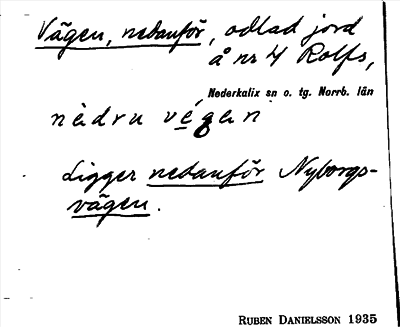 Vägen, nedanför, odlad jord
å nr 4 Rolfs,
Nederkalix sn o. tg. Norrb. län
nèdru végen
Ligger nedanför Nyborgs-
vägen.
RUBEN DANIELSSON 1935